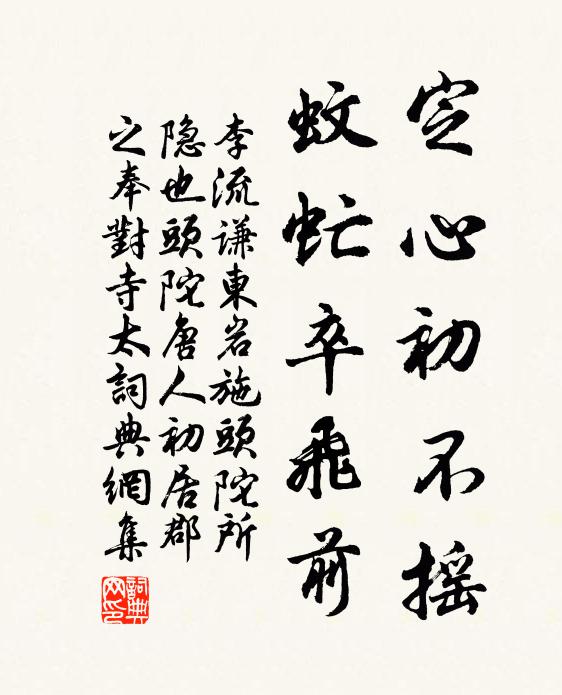 定心初不摇
蚊虻卒飛前
李流谦東岩施頭陀所
隐也頭陀唐人初居郡
之奉對寺太詞典網集
詞典网印